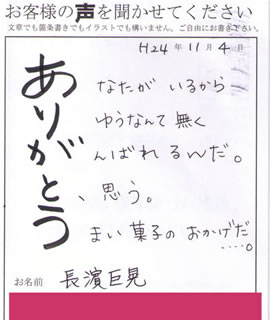 お客様の声を聞かせてください
文章でも箇条書きでもイラストでも構いません。ご自由にお書き下さい。
H24年11月4日
ありがとう
なたが いるから
ゆうなんて 無く
んばれるんだ。
、思う。
まい 菓子の おかげだ
....。
お名前 長濱巨晃